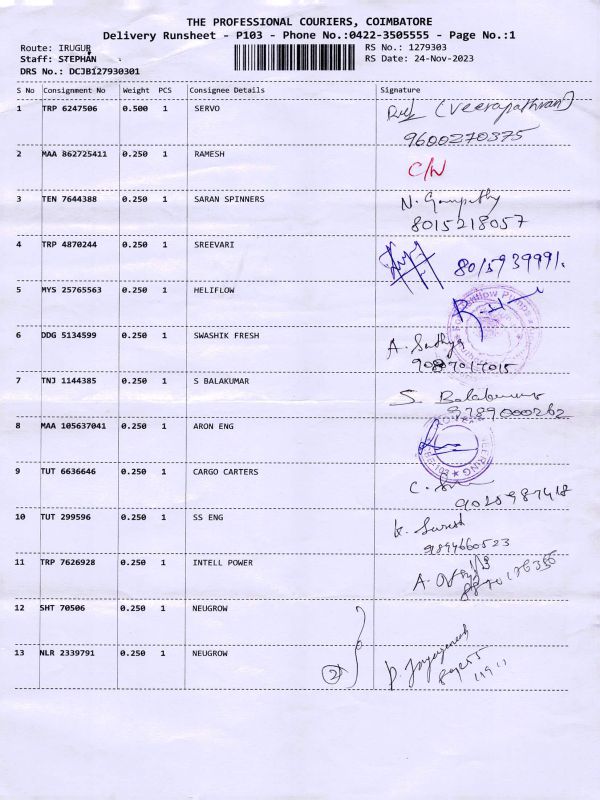 THE PROFESSIONAL COURIERS, COIMBATORE
Delivery Runsheet - P103 - Phone No.:0422-3505555 - Page No.:1
Route: IRUGUR RS No.: 1279303
Staff: STEPHAN RS Date: 24-Nov-2023
DRS No.: DCJB127930301
S No Consignment No Weight PCS Consignee Details Signature
1 TRP 6247506 0.500 1 SERVO (Veerapathiran)
9600270375
2 MAA 862725411 0.250 1 RAMESH C/N
3 TEN 7644388 0.250 1 SARAN SPINNERS N. Gompathy
8015218057
4 TRP 4870244 0.250 1 SREEVARI
5 MYS 25765563 0.250 1 HELIFLOW
6 DDG 5134599 0.250 1 SWASHIK FRESH A. Sathya
7 TNJ 1144385 0.250 1 S BALAKUMAR S. Balakumar
9789000262
8 MAA 105637041 0.250 1 ARON ENG
9 TUT 6636646 0.250 1 CARGO CARTERS
10 TUT 299596 0.250 1 SS ENG K. Suresh
9894660523
11 TRP 7626928 0.250 1 INTELL POWER
12 SHT 70506 0.250 1 NEUGROW
13 NLR 2339791 0.250 1 NEUGROW
2